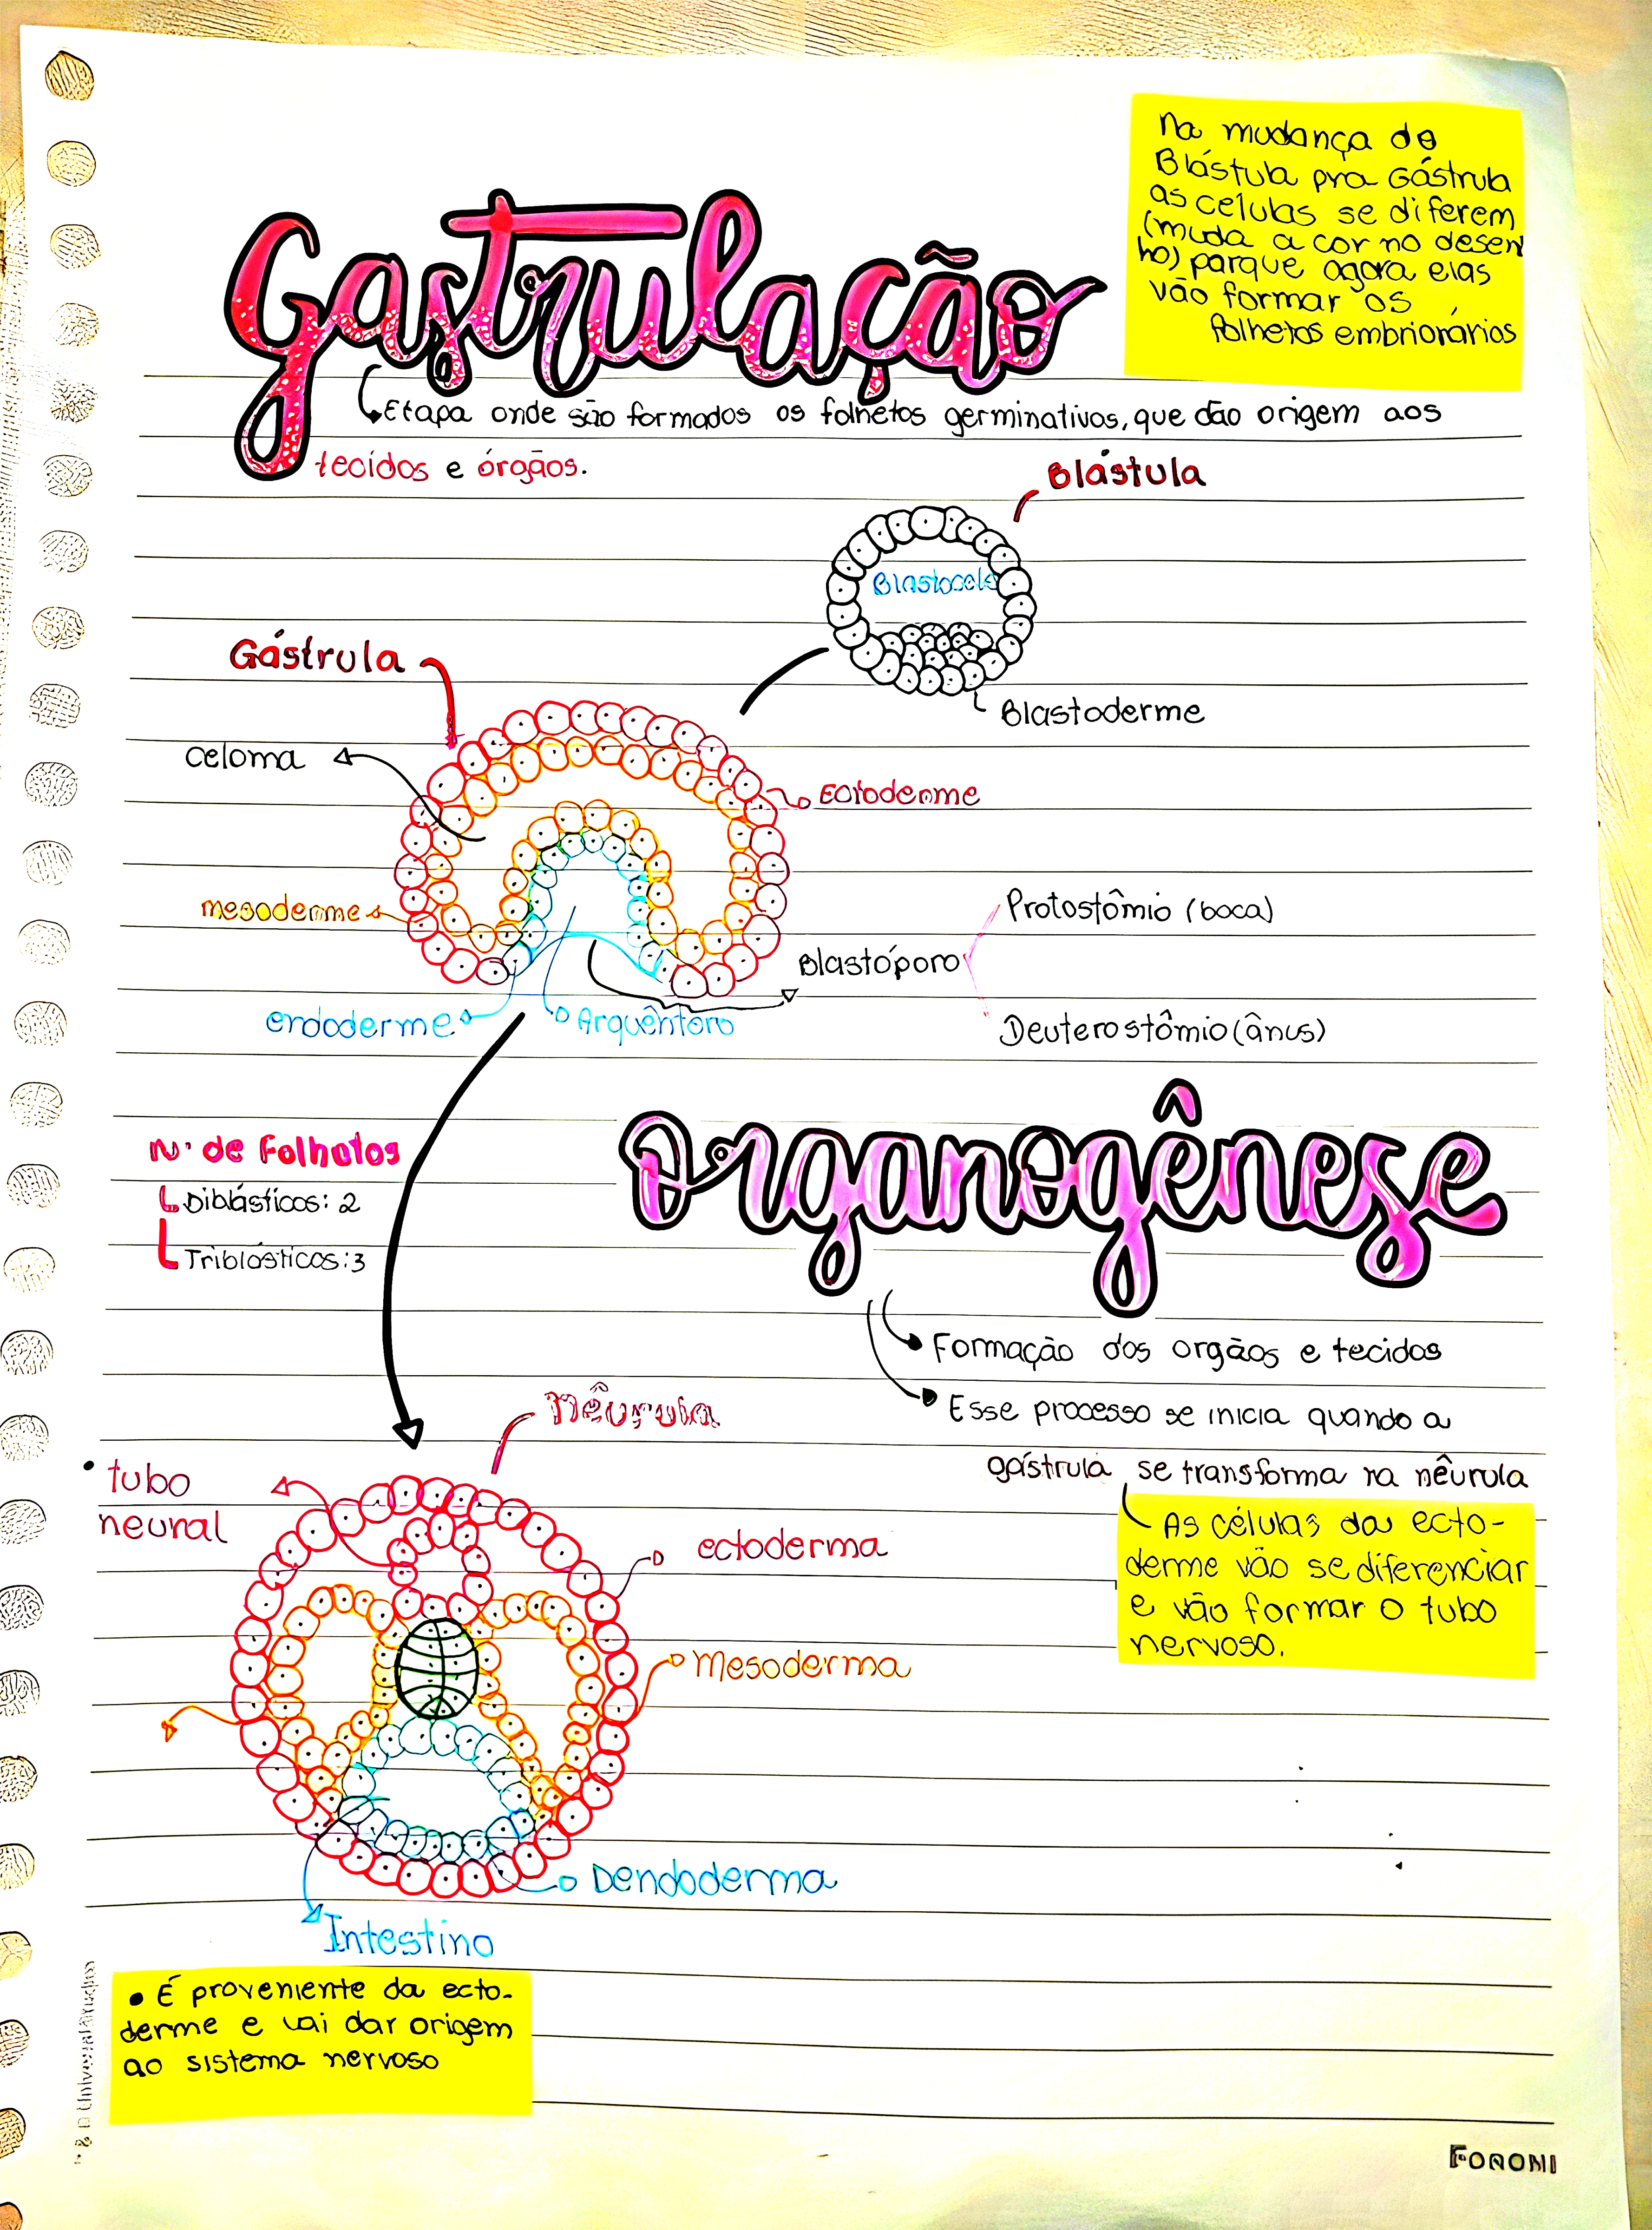 Na mudança de
Blástula pra Gástrula
as células se diferem
(muda a cor no desen
ho) porque agora elas
vão formar os
folhetos embrionários
Gastrulação
Etapa onde são formados os folhetos germinativos, que dão origem aos
tecidos e órgãos.
Blástula
Blastocele
Gástrula
Blastoderme
celoma
Ectoderme
mesoderme
Protostômio (boca)
Blastóporo
endoderme
Arquêntoro
Deuterostômio (ânus)
Organogênese
N· de Folhetos
Diblásticos: 2
Triblásticos: 3
Formação dos orgãos e tecidos
Esse processo se inicia quando a
gástrula se transforma na nêurula
Nêurula
• tubo
neural
As células da ecto-
derme vão se diferenciar
e vão formar o tubo
nervoso.
ectoderma
Mesoderma
Dendoderma
Intestino
• É proveniente da ecto-
derme e vai dar origem
ao sistema nervoso
FORONI